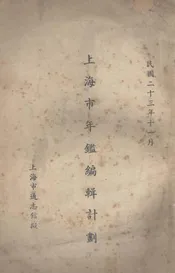 民國二十三年十一月
上海市年鑑編輯計劃
上海市通志館